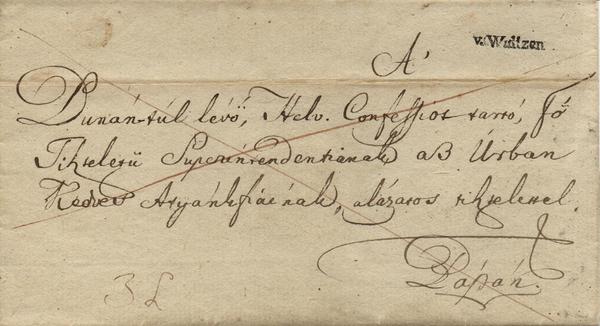 v. Waitzen
A'
Dunán-túl lévő, Helv. Confessiot tartó, Fő
Tiszteletü Superintendentiának aʒ Úrban
Kedves Atyánkfiáénak, alázatos tisztelettel.
Pápán.
3 L